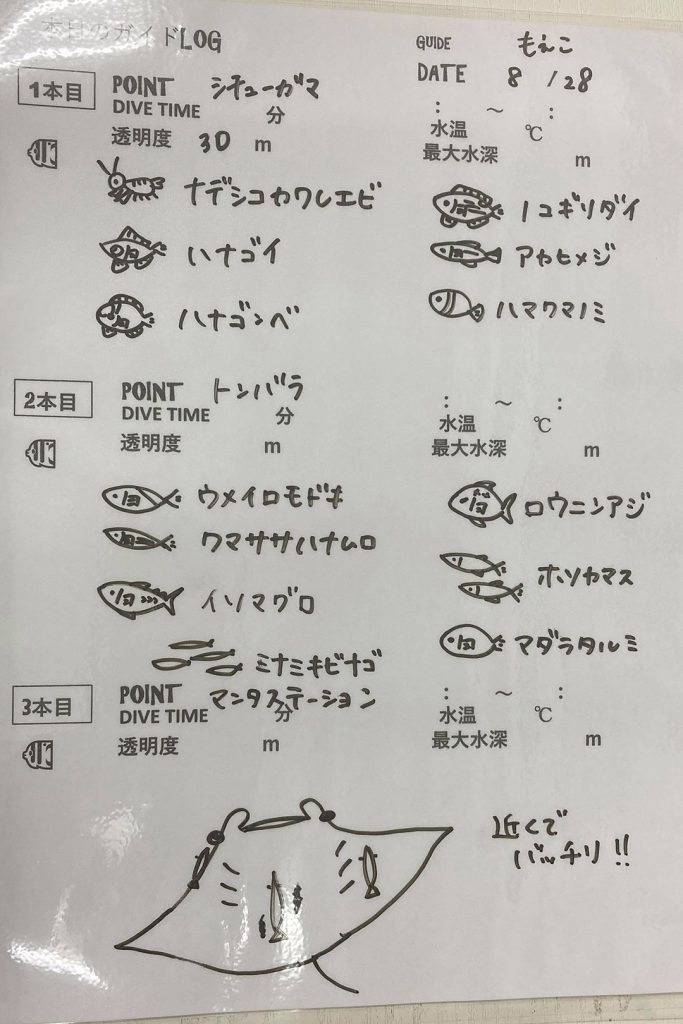 本日のガイドLOG
GUIDE もえこ
DATE 8 / 28
1本目
POINT シチューガマ
DIVE TIME 分 : ～ :
透明度 30 m
水温 ℃
最大水深 m
ナデシコカワレエビ
ノコギリダイ
ハナゴイ
アヤヒメジ
ハナゴンベ
ハマクマノミ
2本目
POINT トンバラ
DIVE TIME 分 : ～ :
透明度 m
水温 ℃
最大水深 m
ウメイロモドキ
ロウニンアジ
クマササハナムロ
ホソカマス
イソマグロ
マダラタルミ
ミナミキビナゴ
3本目
POINT マンタステーション
DIVE TIME 分 : ～ :
透明度 m
水温 ℃
最大水深 m
近くで
バッチリ!!